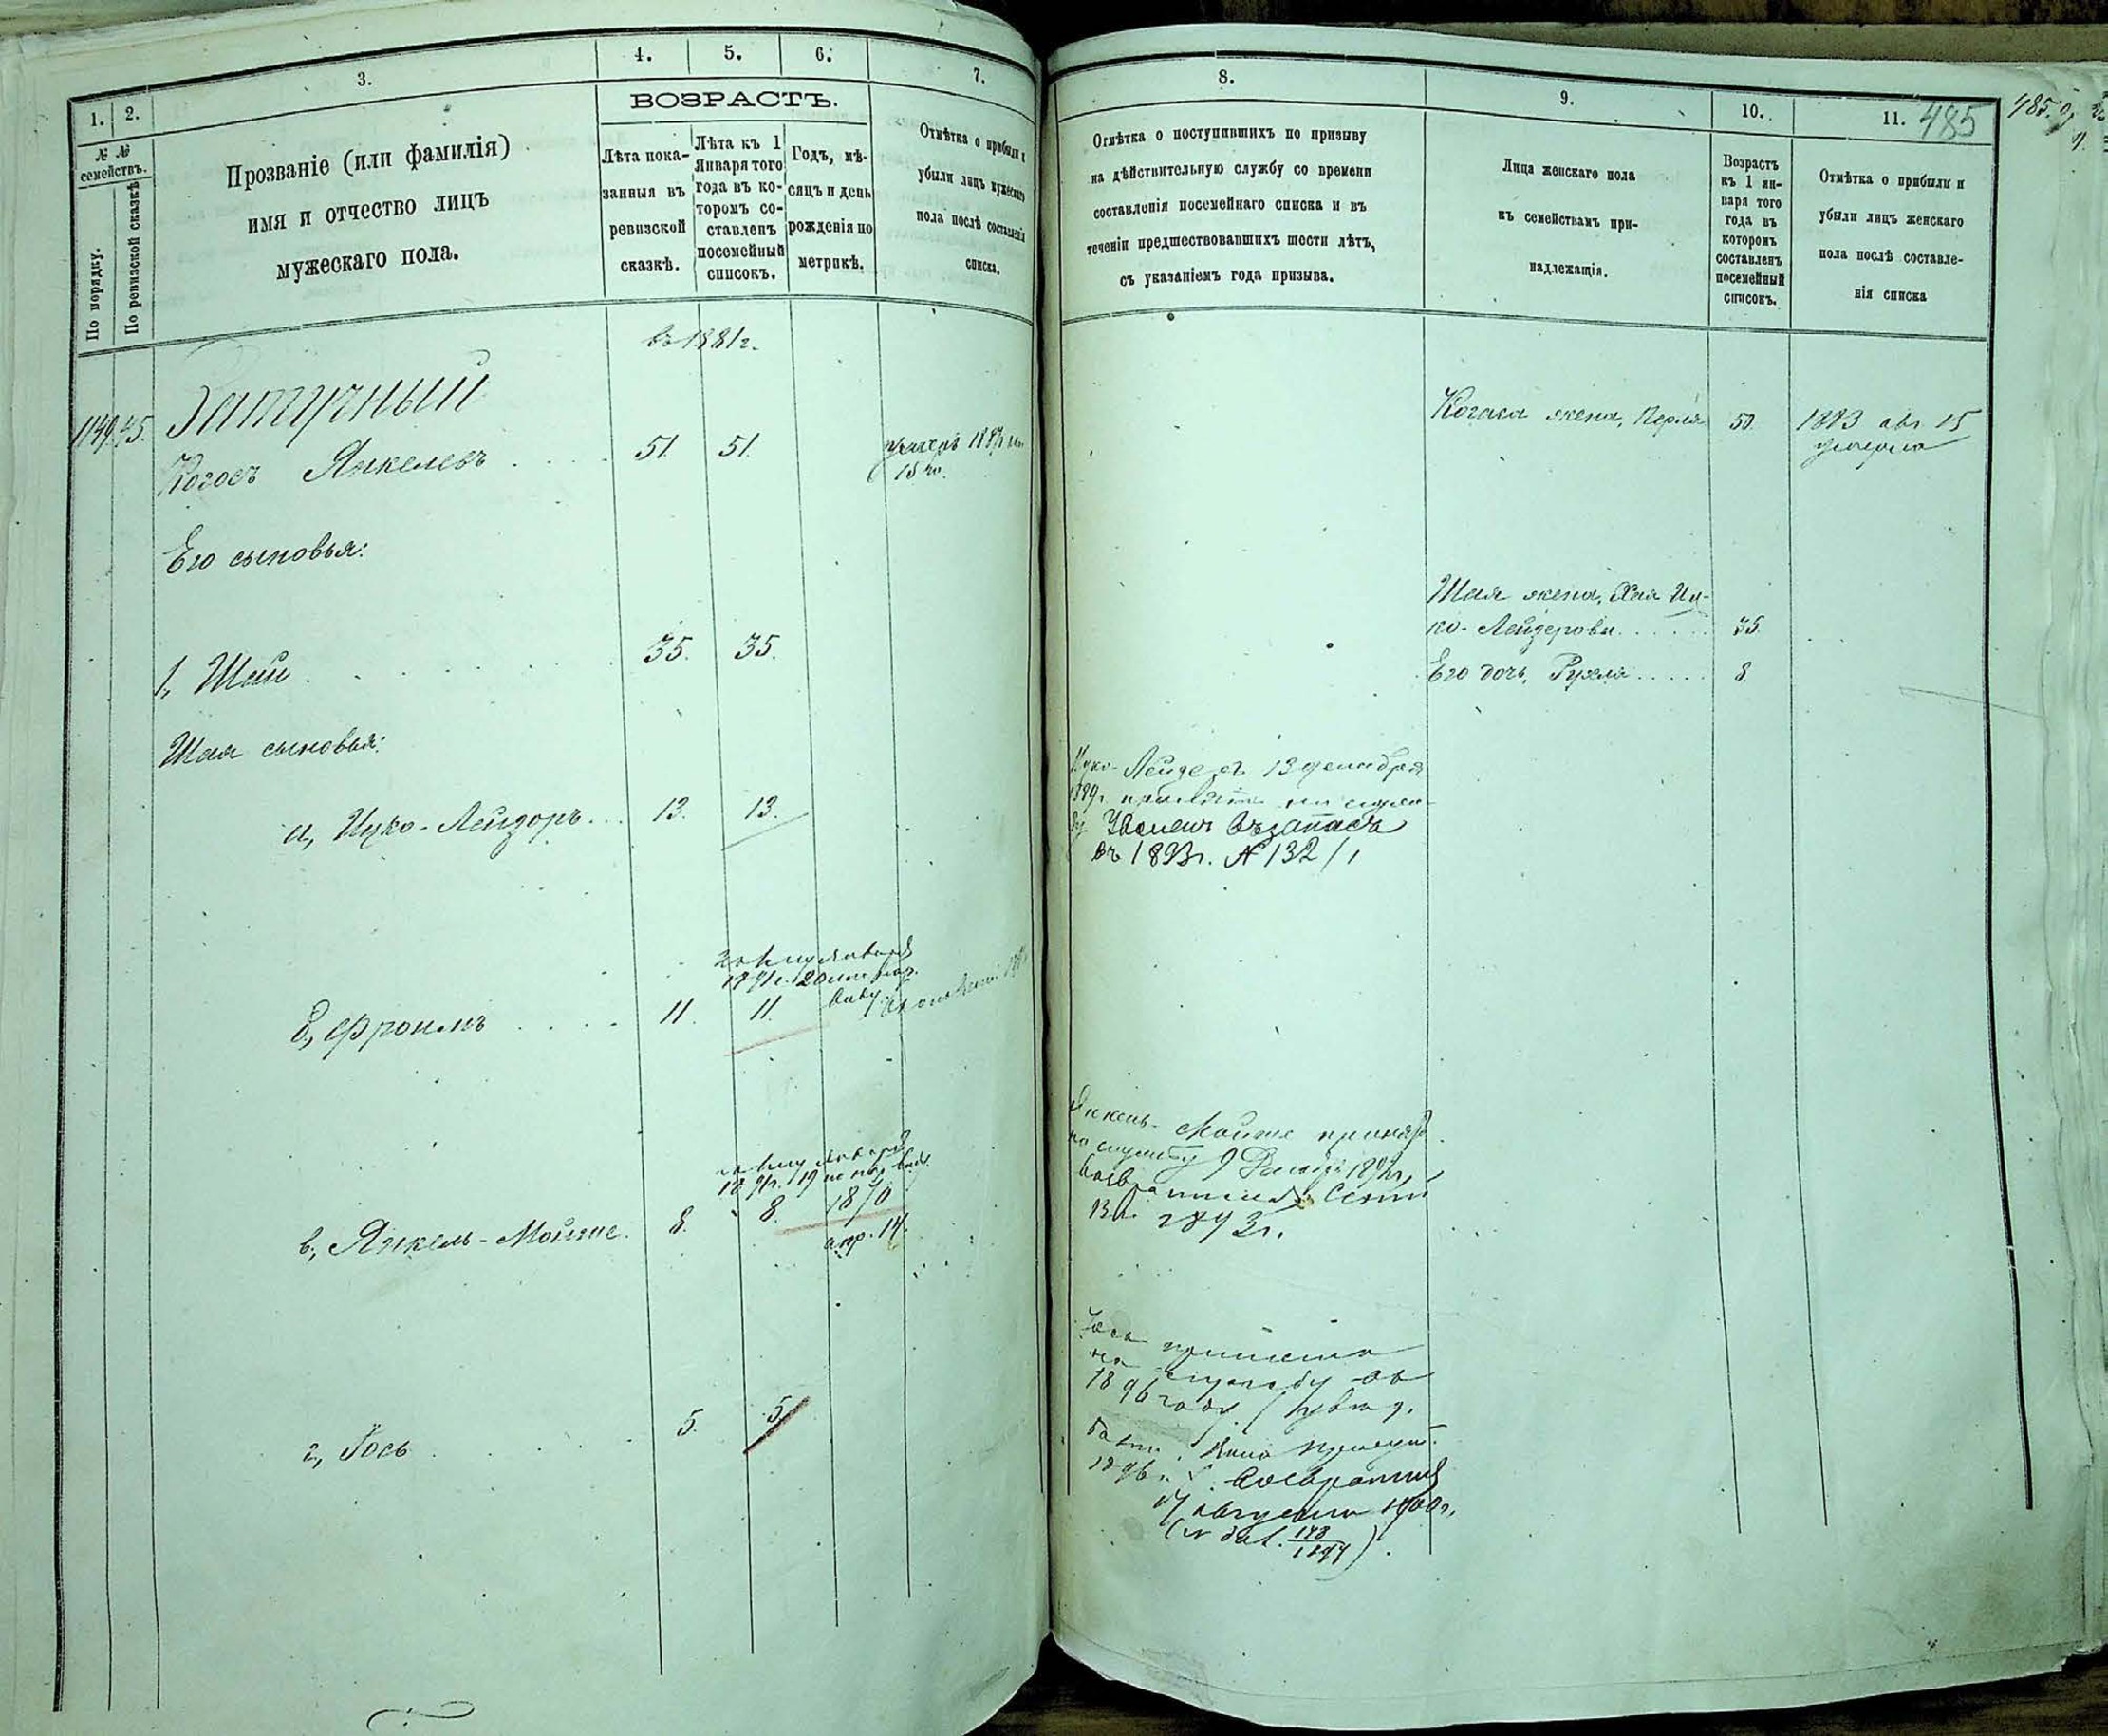 1.
2.
3.
4.
5.
6.
7.
№ №
семействъ.
По порядку.
По ревизской сказкѣ
Прозваніе (или фамилія)
имя и отчество лицъ
мужескаго пола.
ВОЗРАСТЪ.
Лѣта пока-
занныя въ
ревизской
сказкѣ.
Лѣта къ 1
Января того
года въ ко-
торомъ со-
ставленъ
посемейный
списокъ.
Годъ, мѣ-
сяцъ и день
рожденія по
метрикѣ.
Отмѣтка о прибыли и
убыли лицъ мужескаго
пола послѣ составленія
списка.
въ 1881 г.
1149. 45.
Затучный
Когосъ Янкелевъ
51 51.
умеръ
15
Его сыновья:
1, Шая
35. 35.
Шая сыновья:
а, Ицко-Лейзоръ
13. 13.
1891 г. 20
б, Фроимъ
11. 11.
19
в, Янкель-Мойше.
8. 8. 1870
апр. 14.
г, Іось
5. 5.
8.
9.
10.
11.
485
485
Отмѣтка о поступившихъ по призыву
на дѣйствительную службу со времени
составленія посемейнаго списка и въ
теченіи предшествовавшихъ шести лѣтъ,
съ указаніемъ года призыва.
Лица женскаго пола
къ семействамъ при-
надлежащія.
Возрастъ
къ 1 ян-
варя того
года въ
которомъ
составленъ
посемейный
списокъ.
Отмѣтка о прибыли и
убыли лицъ женскаго
пола послѣ составле-
нія списка
Когоса жена, Перля 50. 1883 авг 15
умерла
Шая жена, Хая Иц-
ко-Лейзерова 35.
Его дочь, Рухля 8.
Ицко-Лейзеръ 13 декабря
1889 г. принятъ на служ-
бу Уволенъ въ запасъ
въ 1893 г. № 132/1
Янкель-Мойше принятъ
на службу 9
13 1893 г.
Іось принятъ
на службу въ
1896 году
1896 г. возвратился
17 августа 1900 г.
148
1897